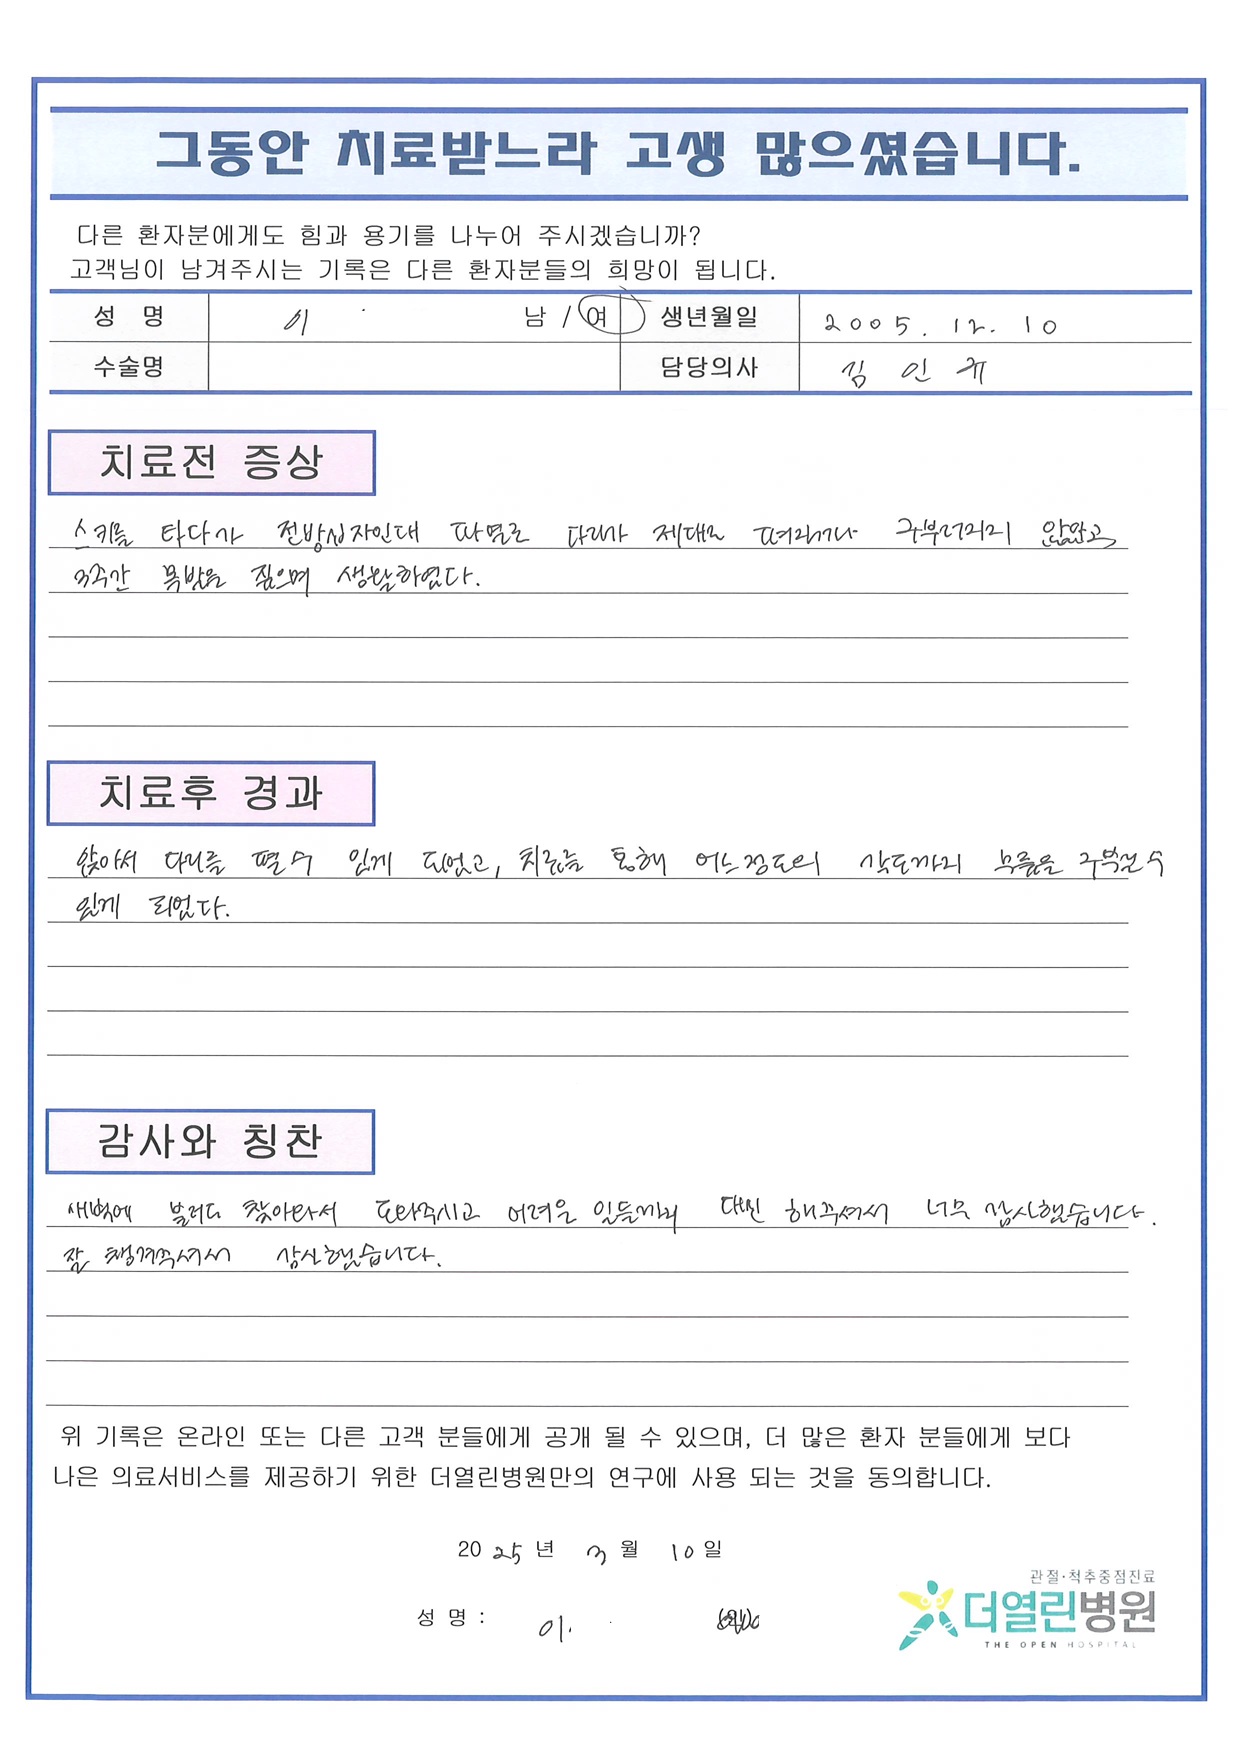 그동안 치료받느라 고생 많으셨습니다.
다른 환자분에게도 힘과 용기를 나누어 주시겠습니까?
고객님이 남겨주시는 기록은 다른 환자분들의 희망이 됩니다.
성 명 이 남 / 여 생년월일 2005. 12. 10
수술명 담당의사 김 인
치료전 증상
스키를 타다가 전방십자인대 파열로 다리가 제대로 펴지거나 구부러지지 않았고,
3주간 목발을 짚으며 생활하였다.
치료후 경과
앉아서 다리를 펼 수 있게 되었고, 치료를 통해 어느정도의 각도까지 무릎을 구부릴 수
있게 되었다.
감사와 칭찬
새벽에 찾아와서 도와주시고 어려운 일들까지 대신 해주셔서 너무 감사했습니다.
잘 챙겨주셔서 감사했습니다.
위 기록은 온라인 또는 다른 고객 분들에게 공개 될 수 있으며, 더 많은 환자 분들에게 보다
나은 의료서비스를 제공하기 위한 더열린병원만의 연구에 사용 되는 것을 동의합니다.
2025년 3월 10일
관절·척추중점진료
성 명 : 이
더열린병원
THE OPEN HOSPITAL